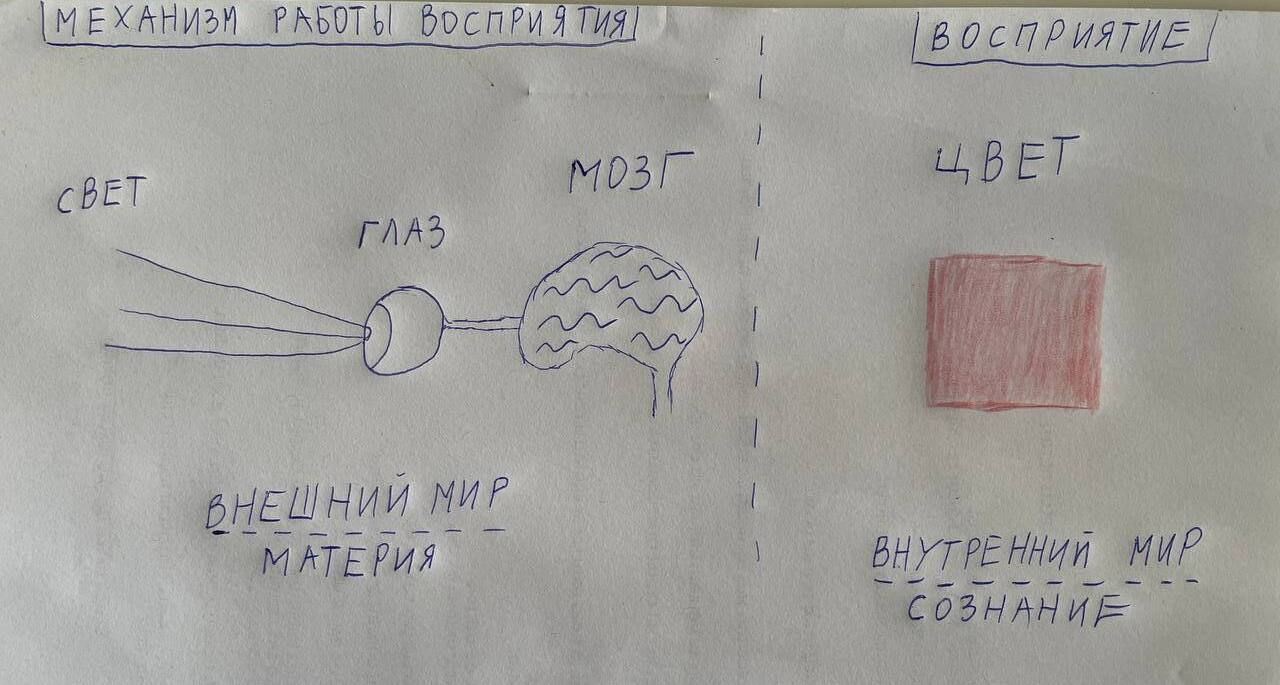 МЕХАНИЗМ РАБОТЫ ВОСПРИЯТИЯ
СВЕТ
ГЛАЗ
МОЗГ
ВНЕШНИЙ МИР
МАТЕРИЯ
ВОСПРИЯТИЕ
ЦВЕТ
ВНУТРЕННИЙ МИР
СОЗНАНИЕ